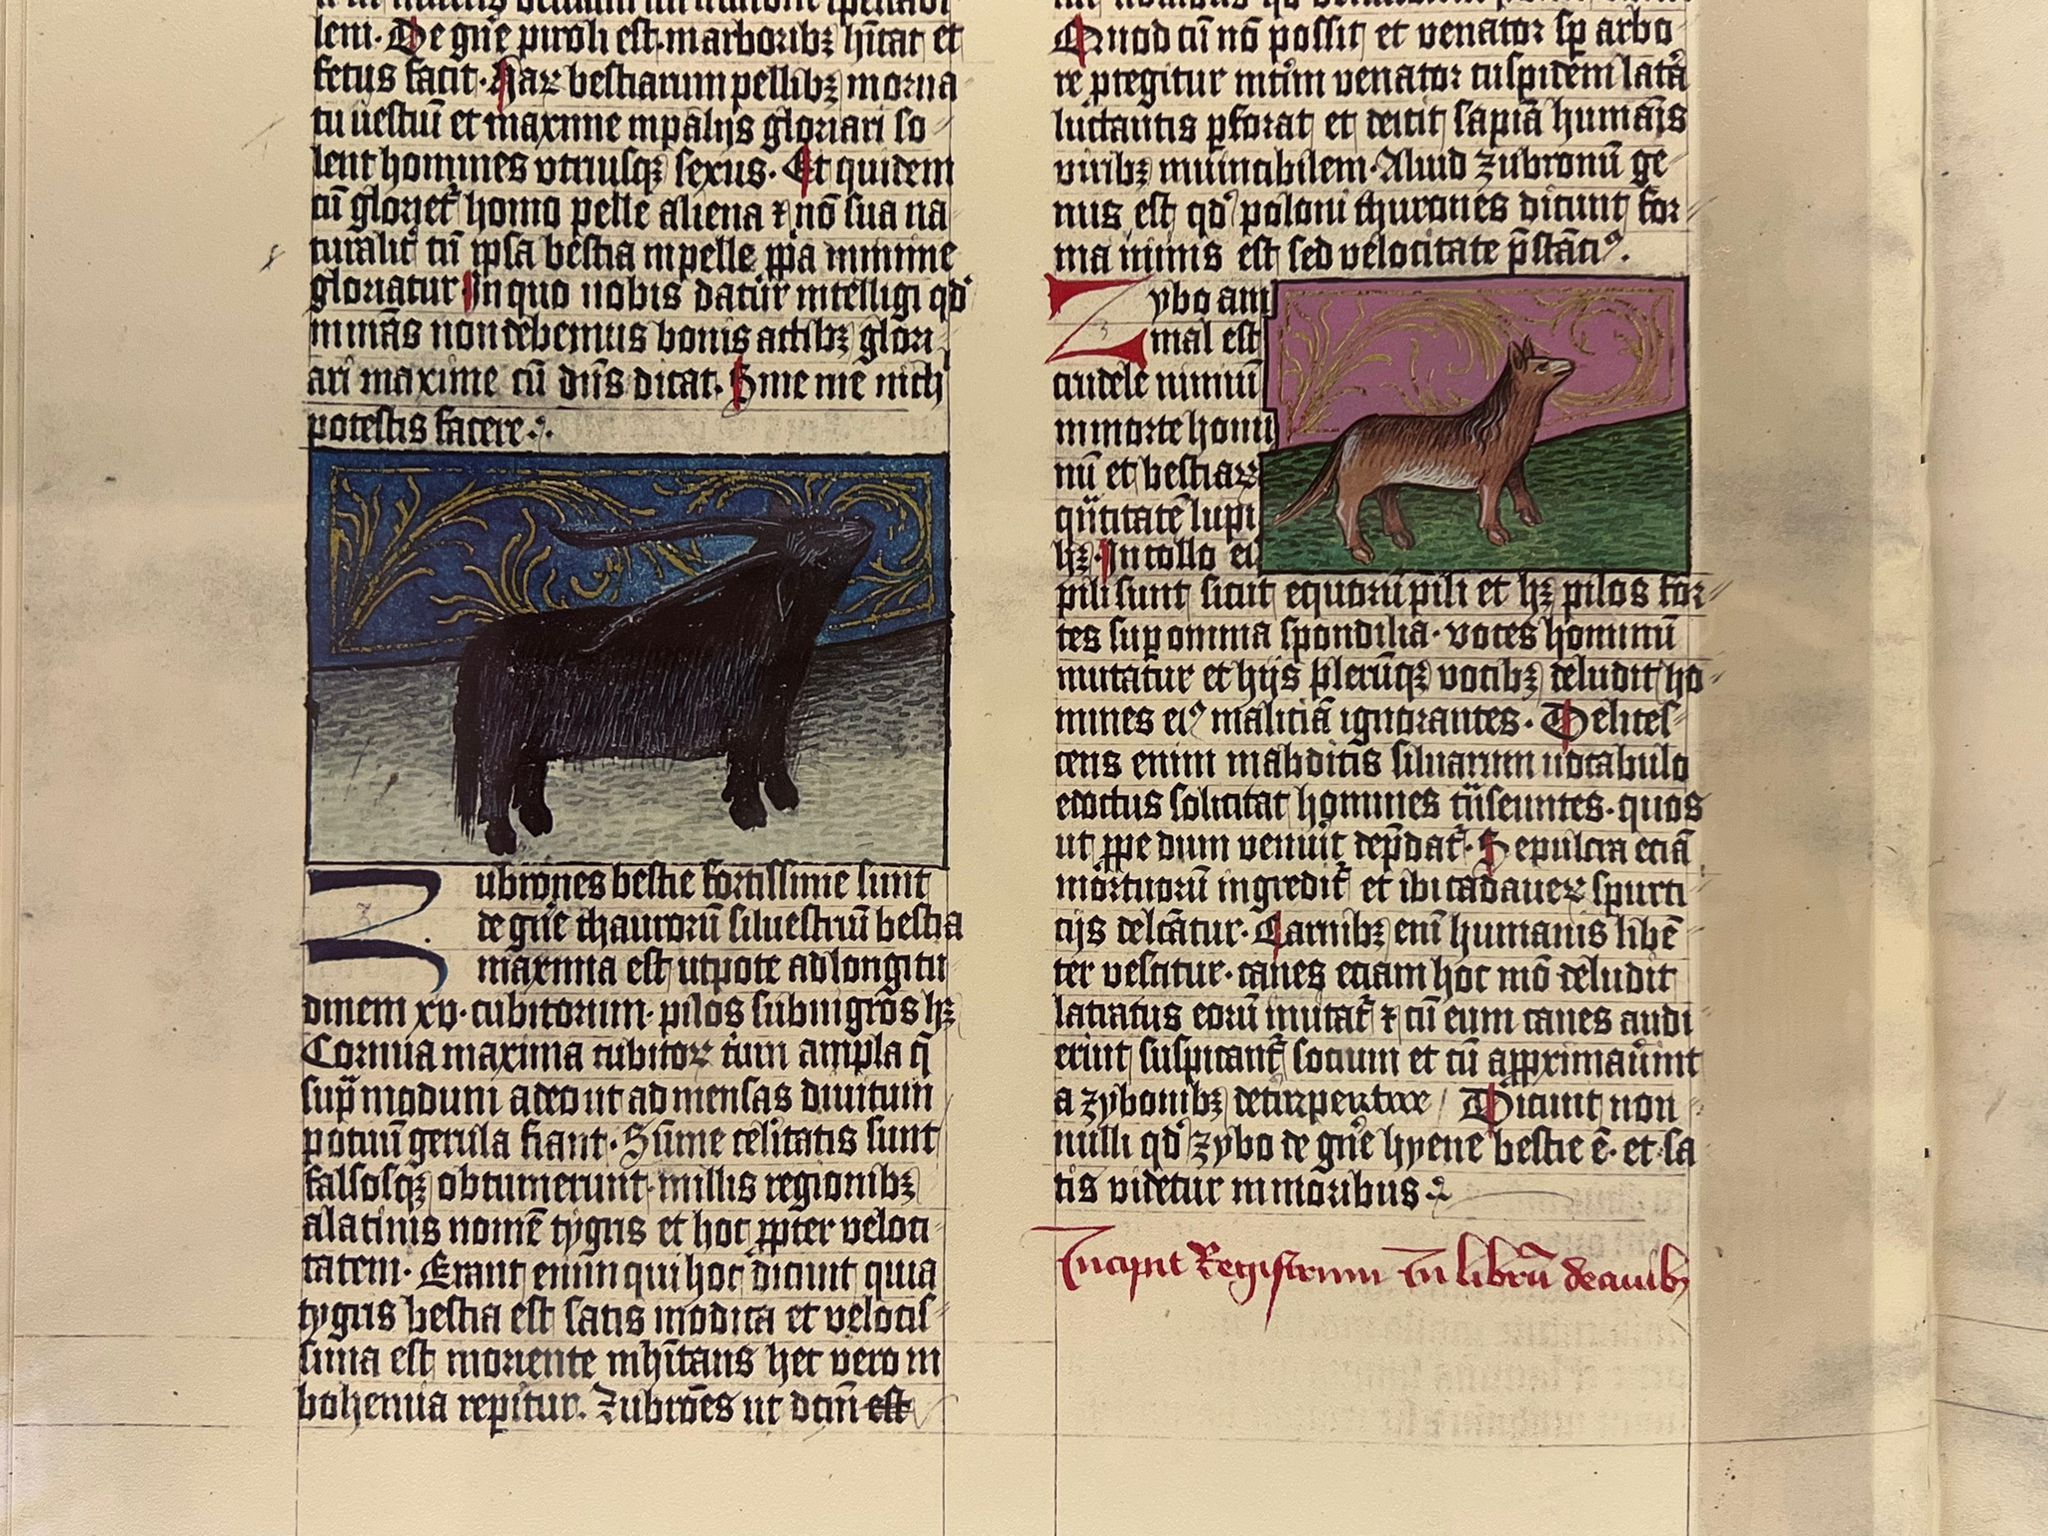 leni. De gn̄e piroli est. marboribꝫ hītat et
fetus facit. Haꝝ bestiarum pellibꝫ in orna
tu uestiū et maxime in palijs gloriari so
lent homines utriusqꝫ sexus. Et quidem
cū glorietr̉ homo pelle aliena ⁊ nō sua na
turalit̉ cū ipsa bestia in pelle ꝓpa minime
gloriatur In quo nobis datur intelligi qd̉
in nr̄is non debemus bonis actibꝫ glori
ari maxime cū dn̄s dicat. Sine me nich̉
potestis facere.
Zubrones bestie fortissime sunt
de gn̄e thaurorū siluestriū bestia
maxima est utpote ad longitu
dinem xv. cubitorum. pilos subnigros hꝫ
Cornua maxima cubitoꝝ trium ampla qͣ̄
supͣ modum adeo ut ad mensas diuitum
potuū gerula fiant. Sūme celitatis sunt
falsosqꝫ obtinuerunt. in illis regionibꝫ
a latinis nomē tygris et hoc ꝓpter veloci
tatem. Erant enim qui hoc dicunt quia
tygris bestia est satis modica et velocis
sima est in oriente inhītans hec vero in
bohemia repitur. Zubrōes ut dcm̄ est
Quod cū nō possit et venator sp̄ arbo
re ꝓtegitur int̉im venator cuspidem latꝰa
luctantis ꝑforat et deicit sapiā humanis
viribꝫ inuincibilem. Aliud zubronū ge
nus est qd̉ poloni thurones dicunt for
ma minus est sed velocitate p̄stātiꝰ.
Zybo ani
mal est
crudele nimiū
in morte homi
nū et bestiaꝝ
qͣ̄titatē lupi
hꝫ. In collo eiꝰ
pili sunt sicut equorū pili et hꝫ pilos for
tes supͣ omnia spondilia. voces hominū
mutatur et hijs pleruqꝫ vocibꝫ deludit ho
mines eiꝰ maliciā ignorantes. Delites
cens enim in abditis siluarum uocabulo
edoctus solicitat homines trͣ̄seuntes. quos
ut ꝓpe dum venuit̉ dep̄dat̉. Sepulcra eciā
mortuorū ingredit̉ et ibi cadaueꝝ spurci
cijs delcātur. Carnibꝫ enī humanis libē
ter vescitur. canes eciam hoc mō deludit
latratus eorū mutat̉ ⁊ cū eum canes audi
erint suspicant̉ socium et cū apꝓximaủint
a zybonibꝫ decerpentur Dicunt non
nulli qd̉ zybo de gn̄e hyene bestie ē. et sa
tis videtur in moribus.
Incipit Registrum In librū de auibꝫ